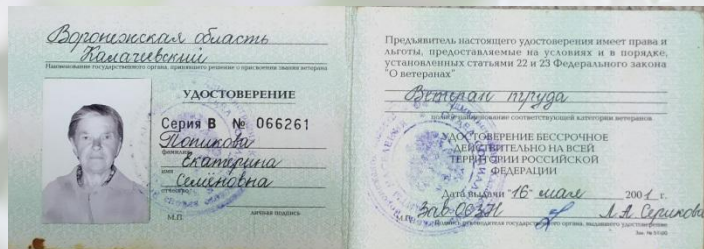 Воронежская область
Калачеевский
Наименование государственного органа, принявшего решение о присвоении звания ветерана
УДОСТОВЕРЕНИЕ
Серия В № 066261
Попикова
фамилия
Екатерина
имя
Семёновна
отчество
М.П. личная подпись
Предъявитель настоящего удостоверения имеет права и
льготы, предоставляемые на условиях и в порядке,
установленных статьями 22 и 23 Федерального закона
"О ветеранах"
Ветеран труда
наименование соответствующей категории ветеранов
УДОСТОВЕРЕНИЕ БЕССРОЧНОЕ
ДЕЙСТВИТЕЛЬНО НА ВСЕЙ
ТЕРРИТОРИИ РОССИЙСКОЙ
ФЕДЕРАЦИИ
Дата выдачи "16" мая 2001 г.
Зав. ОСЗН Л.А. Серикова
М.П. подпись руководителя государственного органа, выдавшего удостоверение